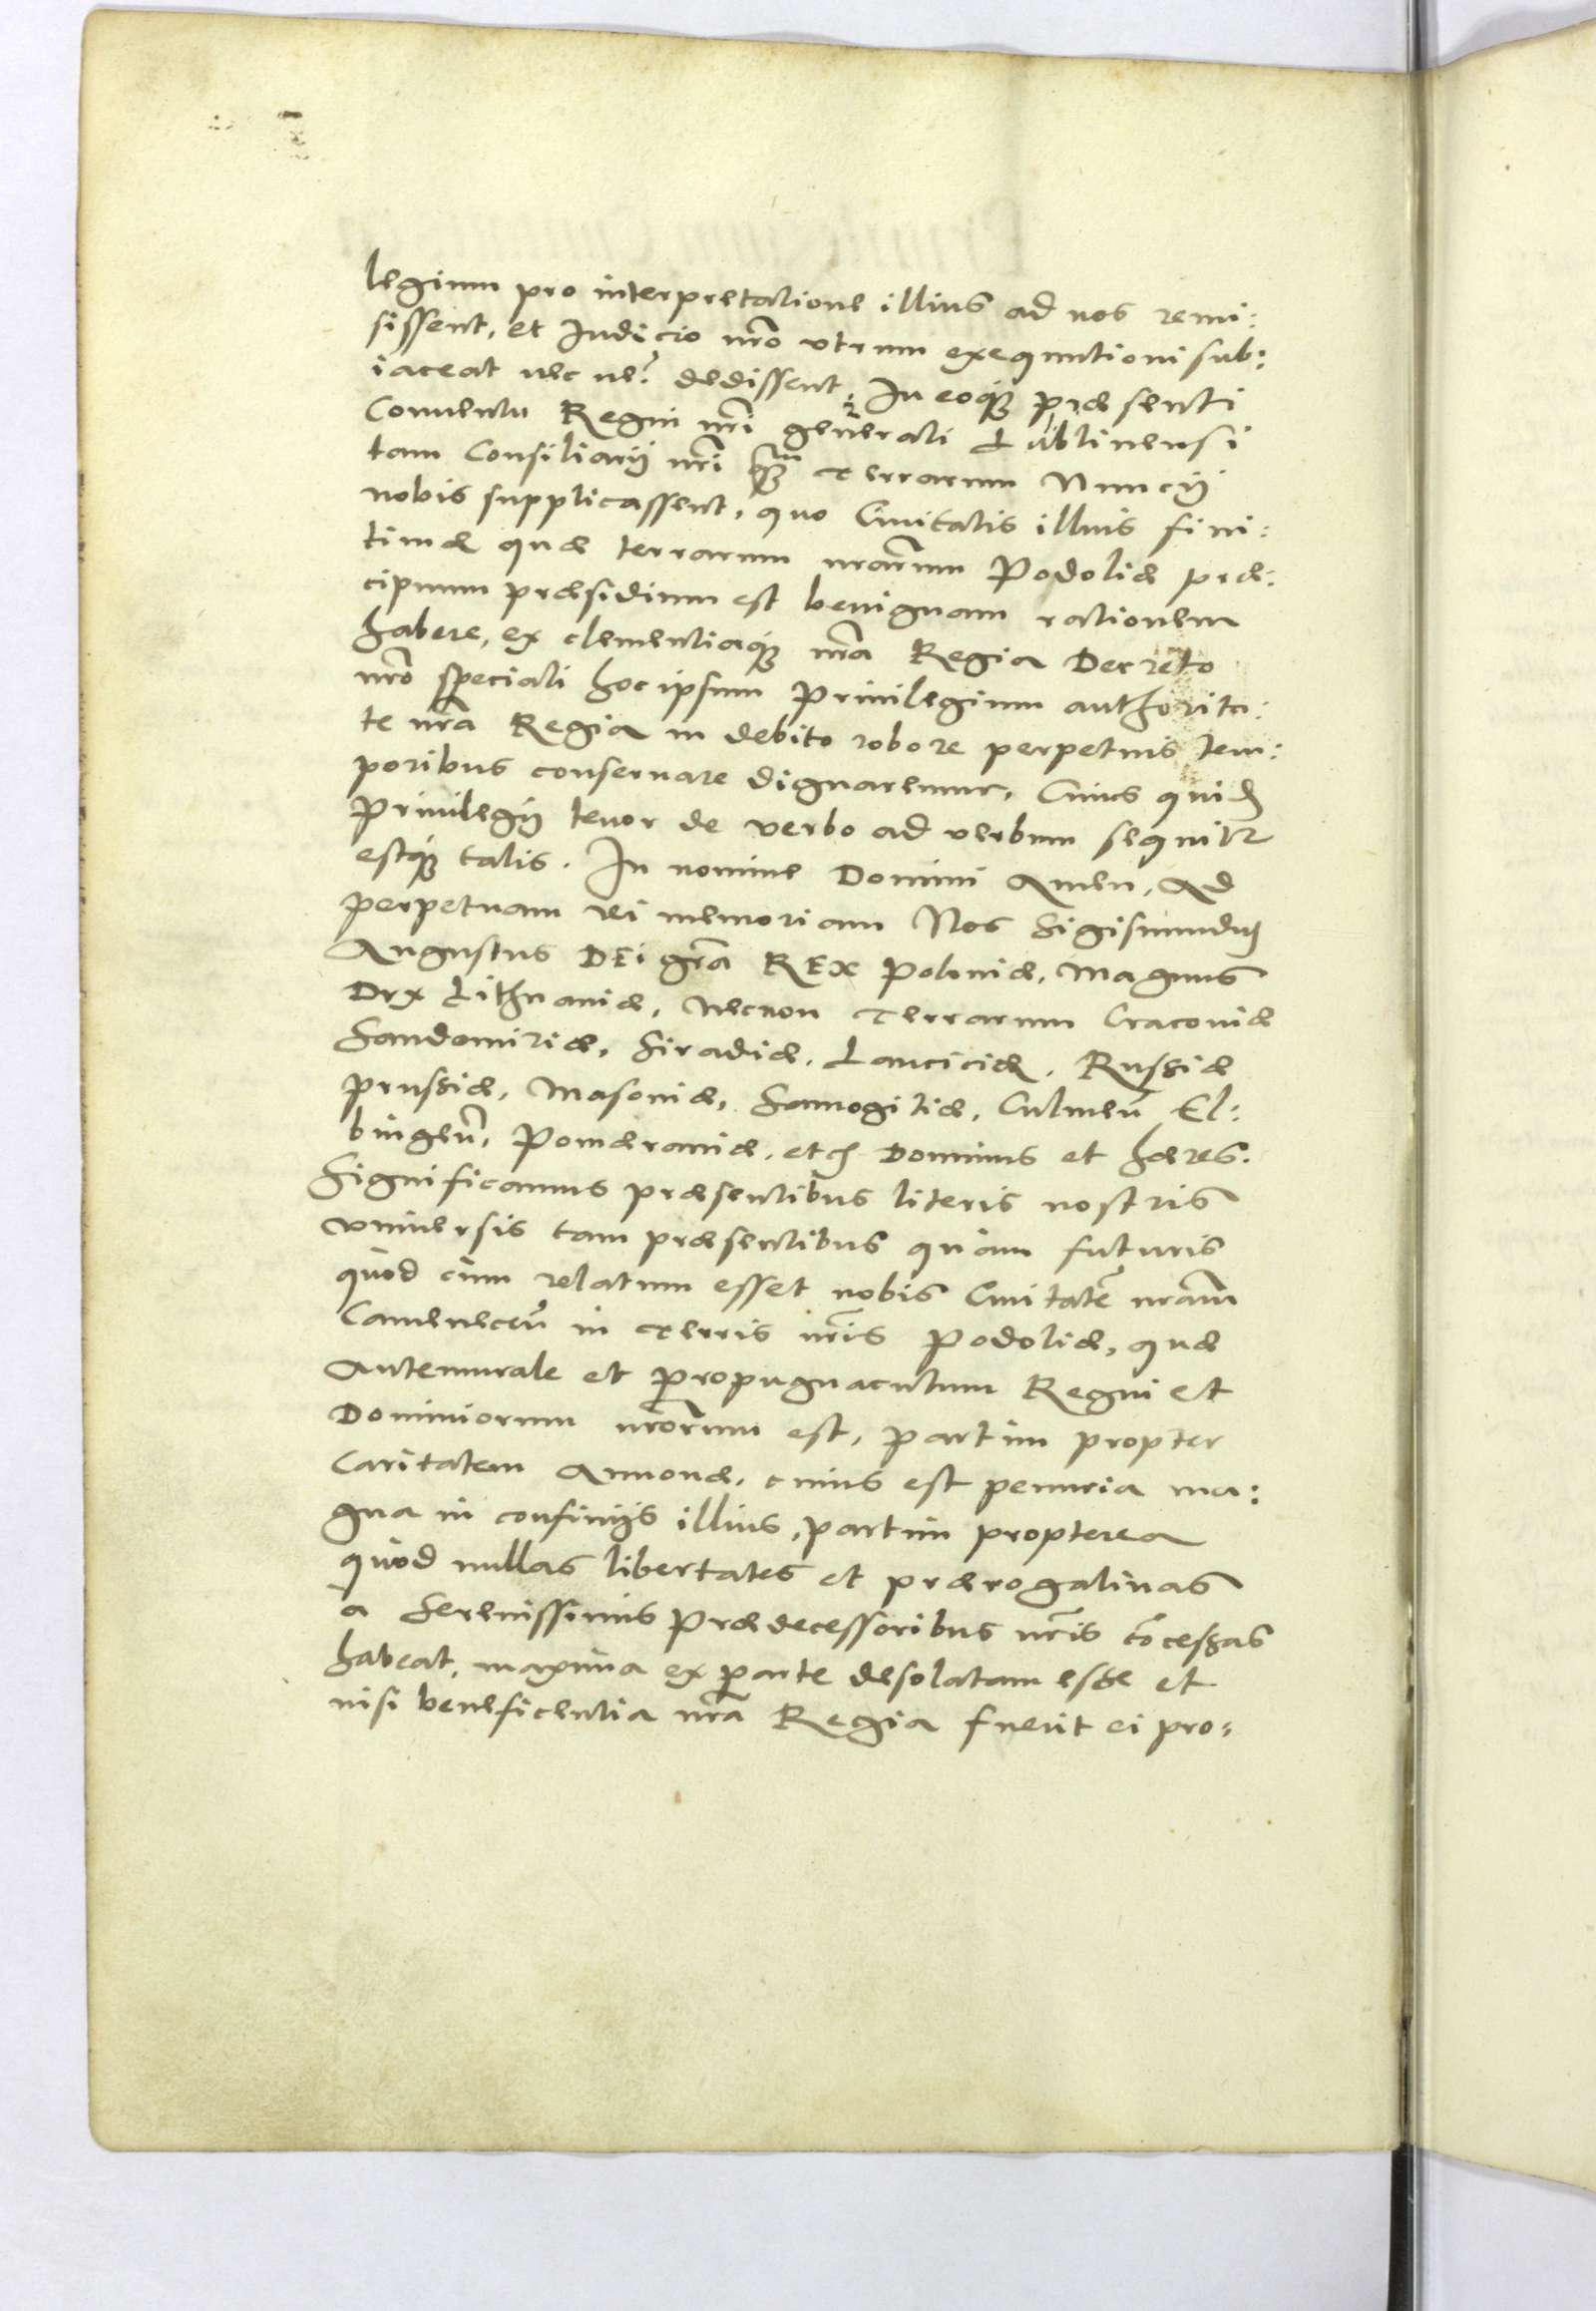 legium pro interpretatione illius ad nos remi:
sissent, et Iudicio nr̃o vtrum exequutioni sub:
iaceat nec ne? dedissent, In eoq́ꝫ præsenti
Conuentu Regni nr̃i generali Lublinensi
tam Consiliarij nr̃i ꝙ̃ Terrarum Nuncij
nobis supplicassent, quo Ciuitatis illius fini:
timæ quæ terrarum nr̃arum Podoliæ præ:
cipuum præsidium est benignam rationem
habere, ex clementiaq́ꝫ nr̃a Regia Decreto
nr̃o speciali hoc ipsum Priuilegium authorita:
te nr̃a Regia in debito robore perpetuis tem:
poribus conseruare dignaremur, Cuius quidẽ
Priuilegij tenor de verbo ad verbum sequitr
estq́ꝫ talis. In nomine Domini Amen, Ad
perpetuam rei memoriam Nos Sigismundus
Augustus DEi gr̃a REX Poloniæ, Magnus
Dux Lithuaniæ, Necnon Terrarum Cracouiæ
Sandomiriæ, Siradiæ, Lanciciæ, Russiæ
Prussiæ, Masouiæ, Samogitiæ, Culmeñ El:
bingeñ, Pomæraniæ, etc̃ Dominus et hæres.
Significamus præsentibus literis nostris
vniuersis tam præsentibus quàm futuris
quòd cùm relatum esset nobis Ciuitatẽ nr̃am
Cameneceñ in Terris nr̃is Podoliæ, quæ
Antemurale et propugnaculum Regni et
Dominiorum nr̃orum est, partim propter
Caritatem Annonæ, cuius est penuria ma:
gna in confinijs illius, partim propterea
quòd nullas libertates et prærogatiuas
a Serenissimis Prædecessoribus nr̃is cõcessas
habeat, maxima ex parte desolatam esse et
nisi beneficentia nr̃a Regia fuerit ei pro: